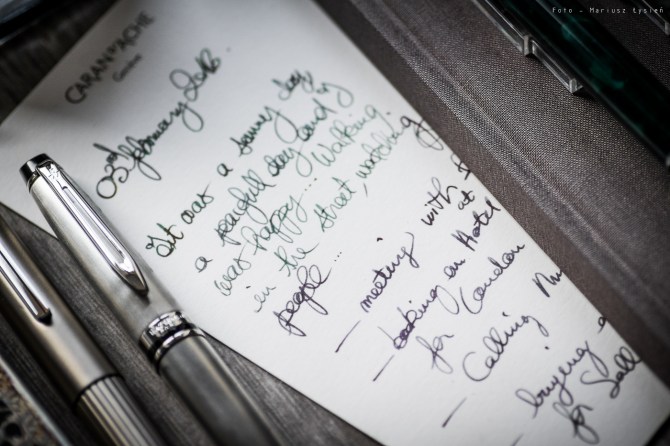 Foto - Mariusz Łysień
CARAN D'ACHE
Genève
03rd february 2018.
It was a sunny day,
a peacfull day and I
was happy... Walking
in the street, watching
people...
- meeting with
at
- booking an Hotel
for London
- Calling
- buying a
for Sall